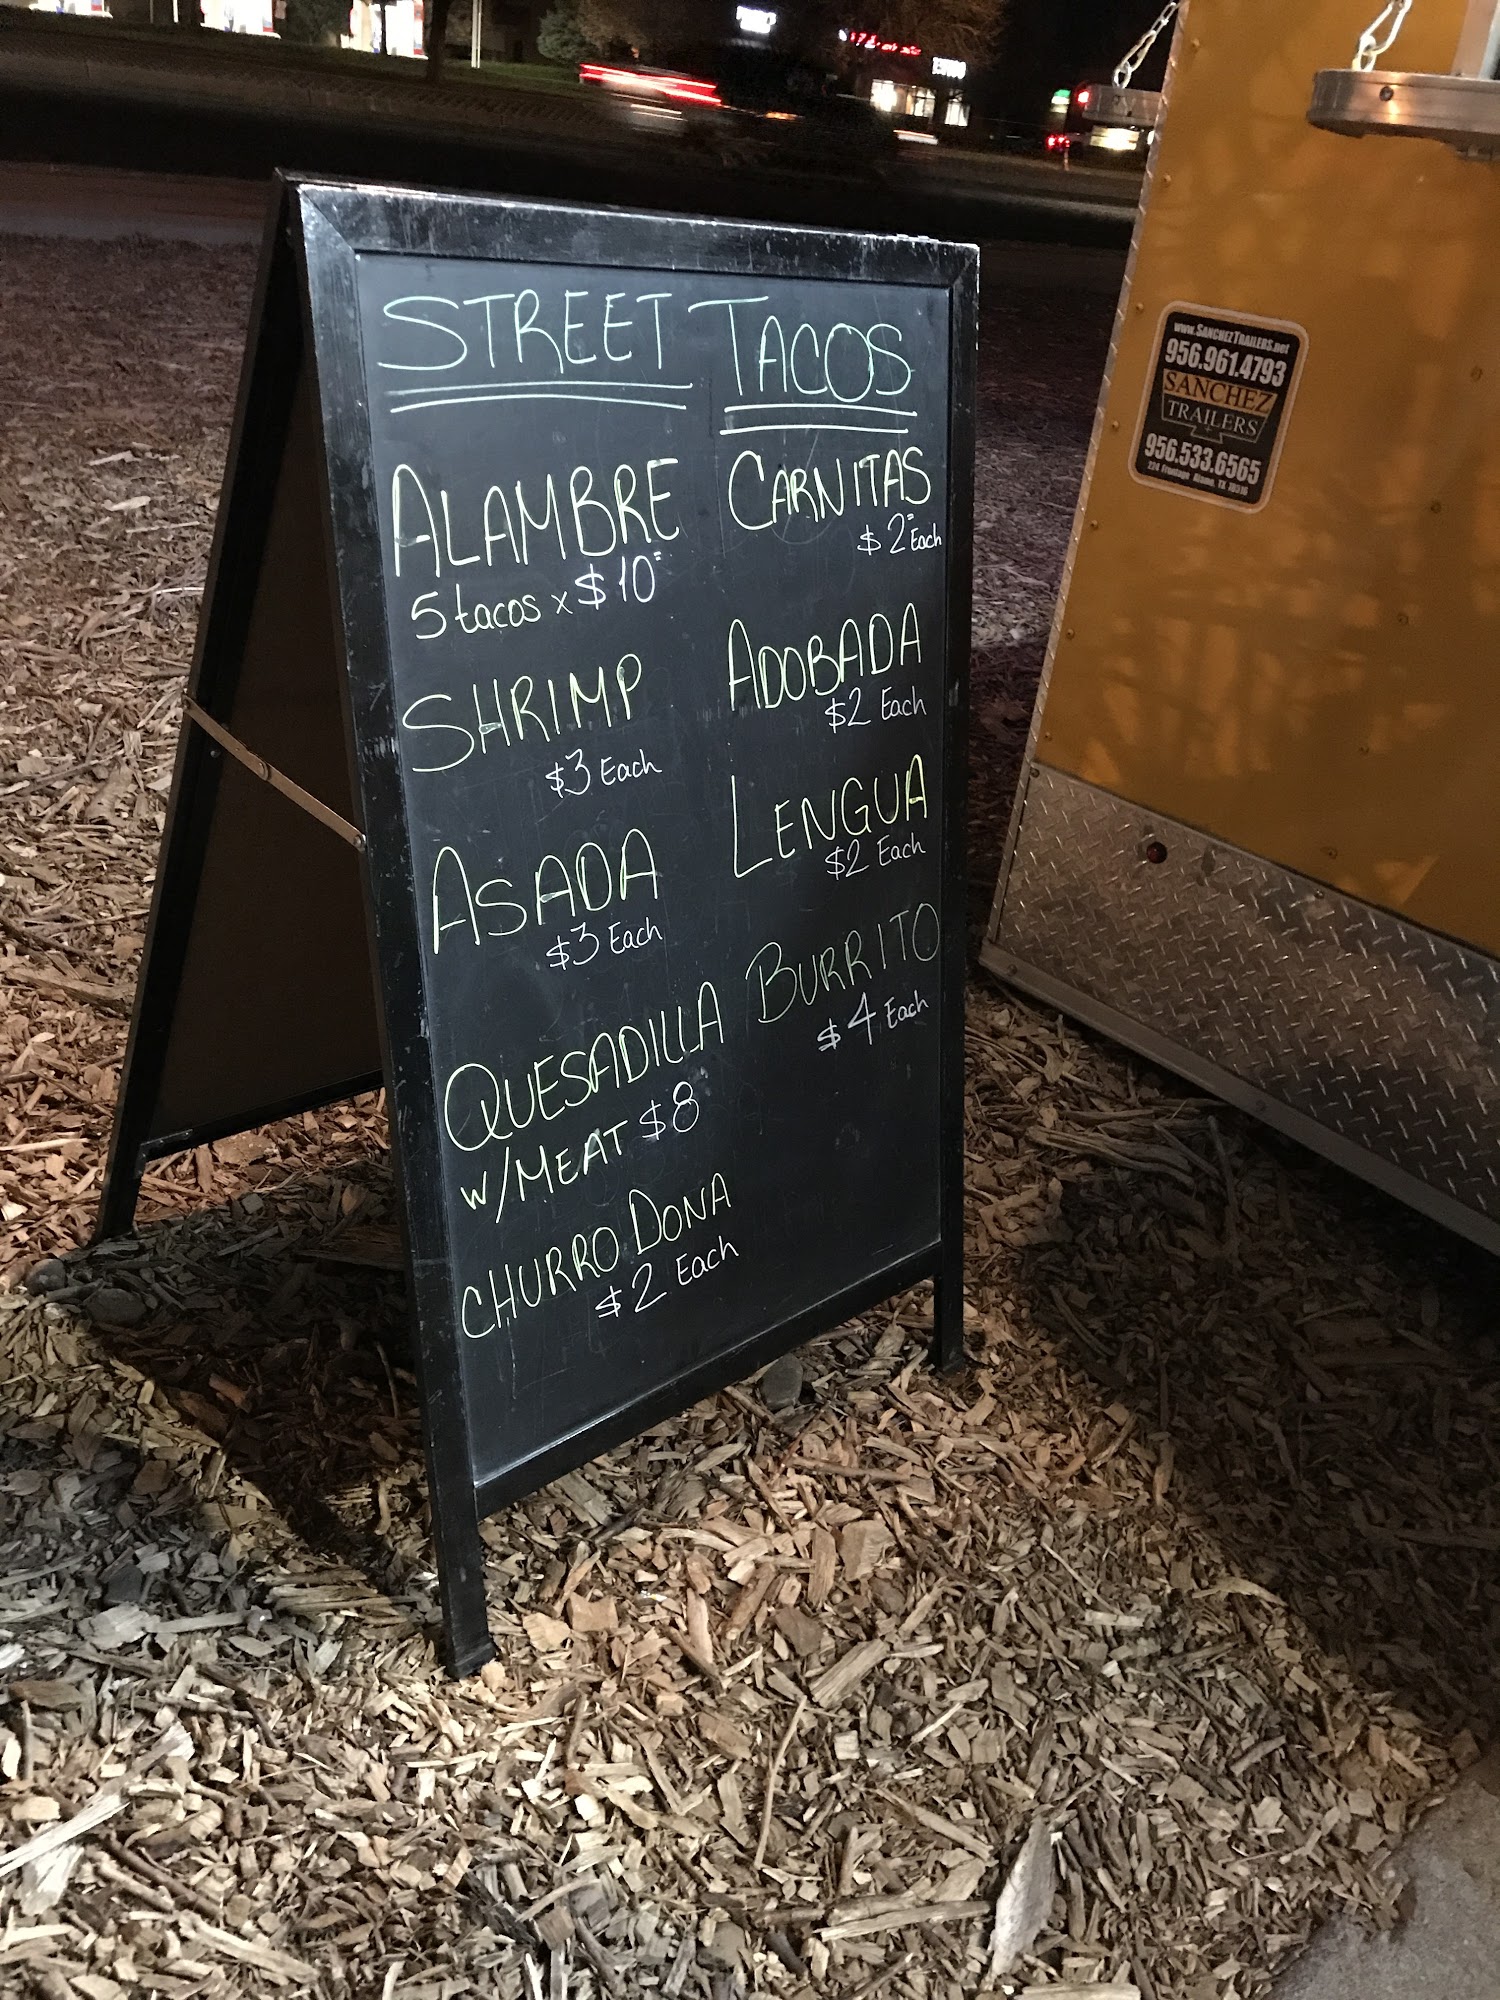 STREET TACOS
ALAMBRE
5 tacos x $10=
SHRIMP
$3 Each
ASADA
$3 Each
QUESADILLA
w/MEAT $8
CHURRO DONA
$2 Each
CARNITAS
$2= Each
ADOBADA
$2 Each
LENGUA
$2 Each
BURRITO
$4 Each
www.SANCHEZTRAILERS.net
956.961.4793
SANCHEZ
TRAILERS
956.533.6565
Frontage Alamo, TX